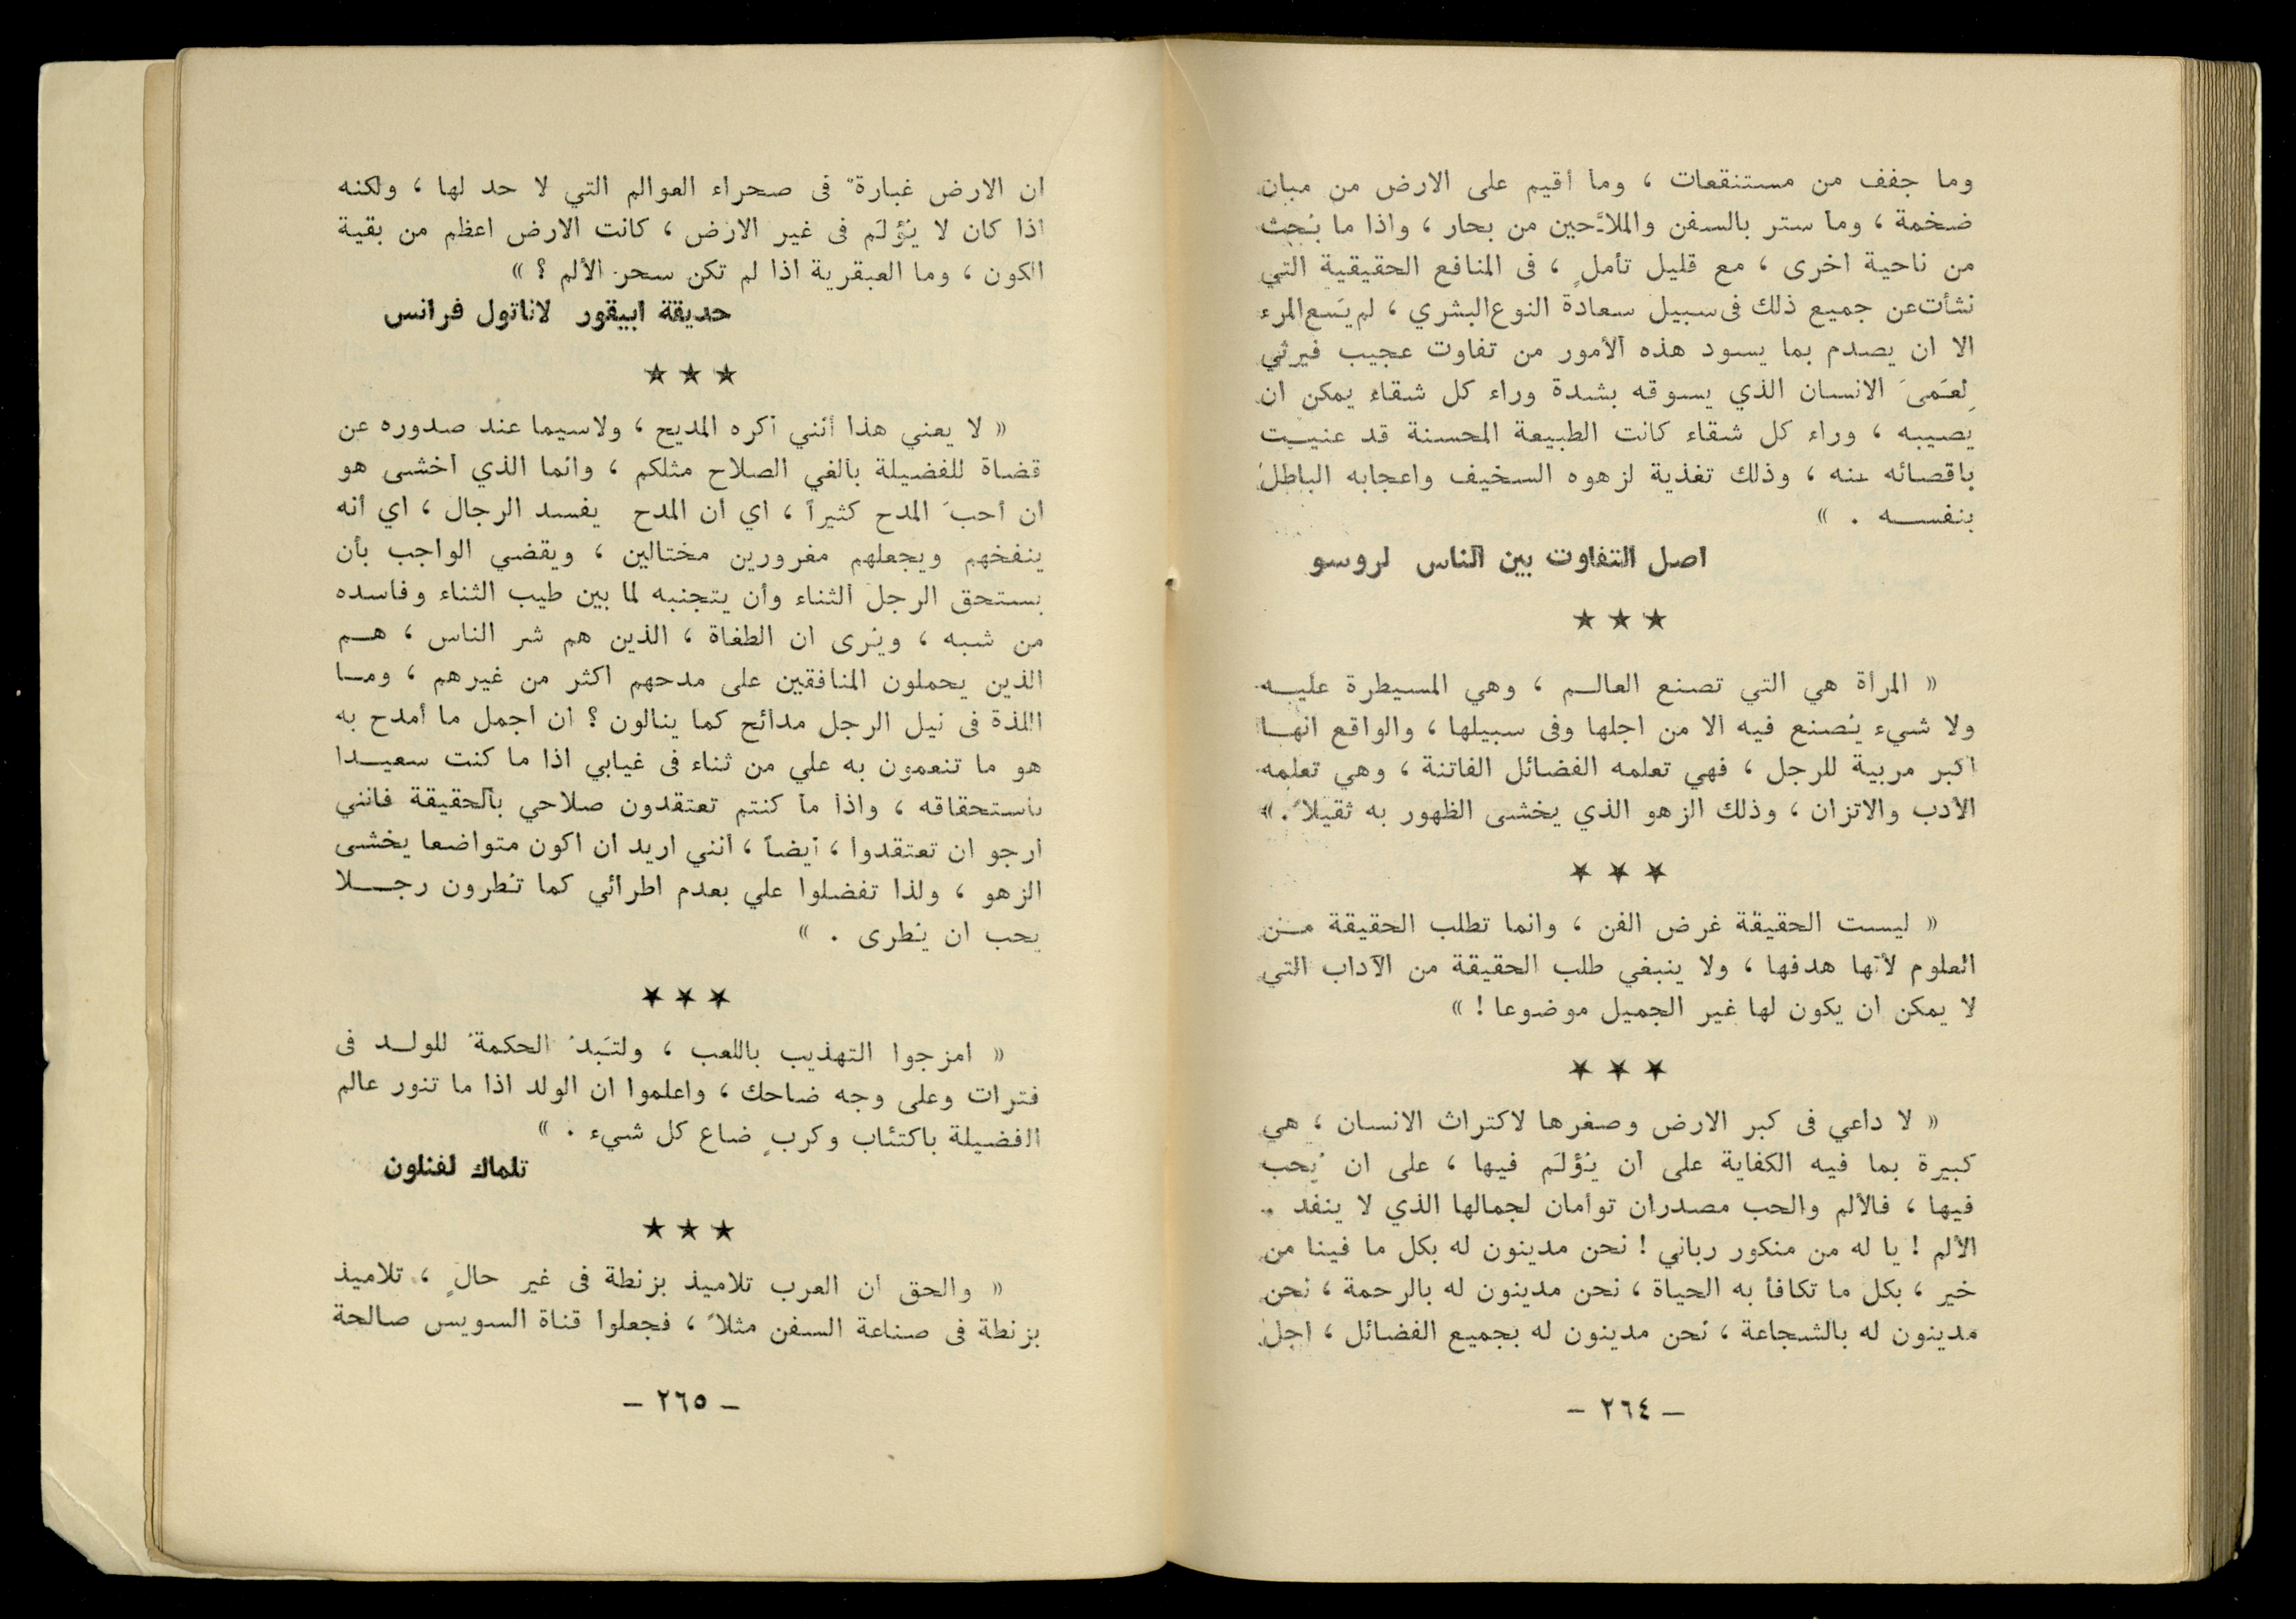 وما جفف من مستنقعات ، وما أقيم على الارض من مبان
ضخمة ، وما ستر بالسفن والملاَّحين من بحار ، واذا ما بُحث
من ناحية اخرى ، مع قليل تأملٍ ، فى المنافع الحقيقية التي
نشأت عن جميع ذلك فى سبيل سعادة النوع البشري ، لم يَسَع المرء
الا ان يصدم بما يسود هذه الأمور من تفاوت عجيب فيرثي
لِعَمىَ الانسان الذي يسوقه بشدة وراء كل شقاء يمكن ان
يصيبه ، وراء كل شقاء كانت الطبيعة المحسنة قد عنيت
باقصائه عنه ، وذلك تغذية لزهوه السخيف واعجابه الباطل
بنفسه . »
اصل التفاوت بين الناس لروسو
★ ★ ★
« المرأة هي التي تصنع العالم ، وهي المسيطرة عليه
ولا شيء يُصنع فيه الا من اجلها وفى سبيلها ، والواقع انها
اكبر مربية للرجل ، فهي تعلمه الفضائل الفاتنة ، وهي تعلمه
الأدب والاتزان ، وذلك الزهو الذي يخشى الظهور به ثقيلاً . »
★ ★ ★
« ليست الحقيقة غرض الفن ، وانما تطلب الحقيقة من
العلوم لأنها هدفها ، ولا ينبغي طلب الحقيقة من الآداب التي
لا يمكن ان يكون لها غير الجميل موضوعا ! »
★ ★ ★
« لا داعي فى كبر الارض وصغرها لاكتراث الانسان ، هي
كبيرة بما فيه الكفاية على ان يُؤلَم فيها ، على ان يُحب
فيها ، فالألم والحب مصدران توأمان لجمالها الذي لا ينفد .
الألم ! يا له من منكور رباني ! نحن مدينون له بكل ما فينا من
خير ، بكل ما تكافأ به الحياة ، نحن مدينون له بالرحمة ، نحن
مدينون له بالشجاعة ، نحن مدينون له بجميع الفضائل ، اجل
– ٢٦٤ –
ان الارض غبارة فى صحراء العوالم التي لا حد لها ، ولكنه
اذا كان لا يُؤلَم فى غير الارض ، كانت الارض اعظم من بقية
الكون ، وما العبقرية اذا لم تكن سحر الألم ؟ »
حديقة ابيقور لاناتول فرانس
★ ★ ★
« لا يعني هذا أنني اكره المديح ، ولاسيما عند صدوره عن
قضاة للفضيلة بالغي الصلاح مثلكم ، وانما الذي أخشى هو
ان أحبَ المدح كثيراً ، اي ان المدح يفسد الرجال ، اي أنه
ينفخهم ويجعلهم مغرورين مختالين ، ويقضي الواجب بأن
يستحق الرجل الثناء وأن يتجنبه لما بين طيب الثناء وفاسده
من شبه ، ويُرى ان الطغاة ، الذين هم شر الناس ، هم
الذين يحملون المنافقين على مدحهم اكثر من غيرهم ، وما
اللذة فى نيل الرجل مدائح كما ينالون ؟ ان اجمل ما أمدح به
هو ما تنعمون به علي من ثناء فى غيابي اذا ما كنت سعيدا
باستحقاقه ، واذا ما كنتم تعتقدون صلاحي بالحقيقة فانني
ارجو ان تعتقدوا ، أيضاً ، أنني اريد ان اكون متواضعا يخشى
الزهو ، ولذا تفضلوا علي بعدم اطرائي كما تُطرون رجلا
يحب ان يُطرى . »
★ ★ ★
« امزجوا التهذيب باللعب ، ولتَبدُ الحكمة للولد فى
فترات وعلى وجه ضاحك ، واعلموا ان الولد اذا ما تنور عالم
الفضيلة باكتئاب وكربٍ ضاع كل شيء . »
تلماك لفنلون
★ ★ ★
« والحق ان العرب تلاميذ بزنطة فى غير حالٍ ، تلاميذ
بزنطة فى صناعة السفن مثلاً ، فجعلوا قناة السويس صالحة
– ٢٦٥ –